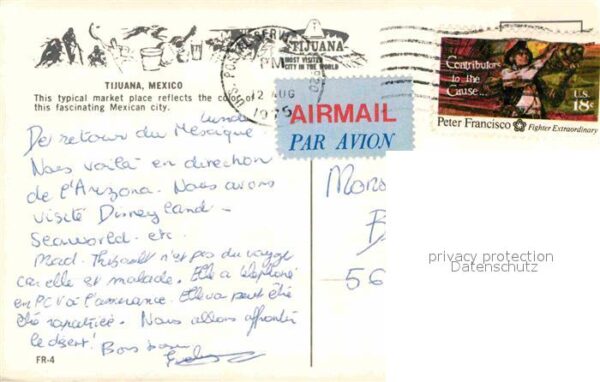 TIJUANA
MOST VISITED
CITY IN THE WORLD
TIJUANA, MEXICO
This typical market place reflects the color of
this fascinating Mexican city.
U.S. POSTAL SERVICE
PM
12 AUG
1975
AIRMAIL
PAR AVION
Contributors
to the
Cause...
U.S.
18c
Peter Francisco Fighter Extraordinary
Lundi
De retour du Mexique
Nous voilà en direction
de l'Arizona. Nous avons
visité Disneyland -
Seaworld. etc.
Mad. Thibault n'est pas du voyage
car elle est malade. Elle a téléphoné
en PCV à l'assurance. Elle va peut être
être rapatriée. Nous allons affronter
le désert! Bons
56
privacy protection
Datenschutz
FR-4